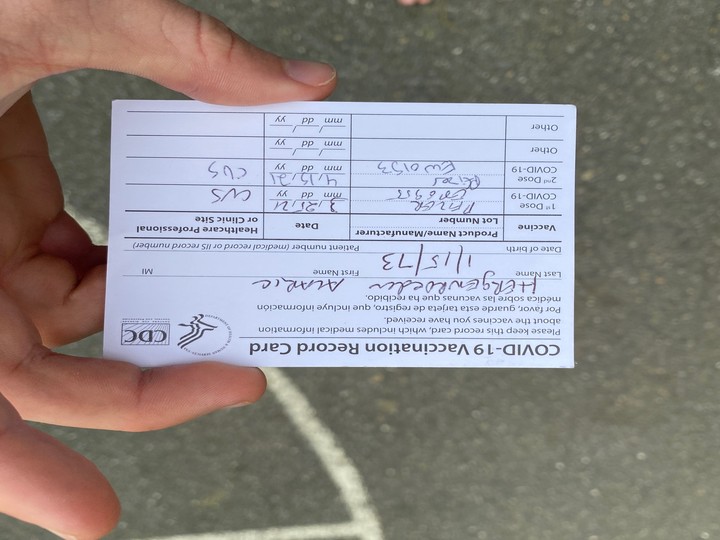 COVID-19 Vaccination Record Card
Please keep this record card, which includes medical information
about the vaccines you have received.
Por favor, guarde esta tarjeta de registro, que incluye información
médica sobre las vacunas que ha recibido.
CDC
Last Name First Name MI
1/15/73
Date of birth Patient number (medical record or IIS record number)
Vaccine Product Name/Manufacturer Lot Number Date Healthcare Professional or Clinic Site
1st Dose COVID-19 PFIZER 3/25/21 mm dd yy CVS
2nd Dose COVID-19 EW0153 4/15/21 mm dd yy CVS
Other / / mm dd yy
Other / / mm dd yy